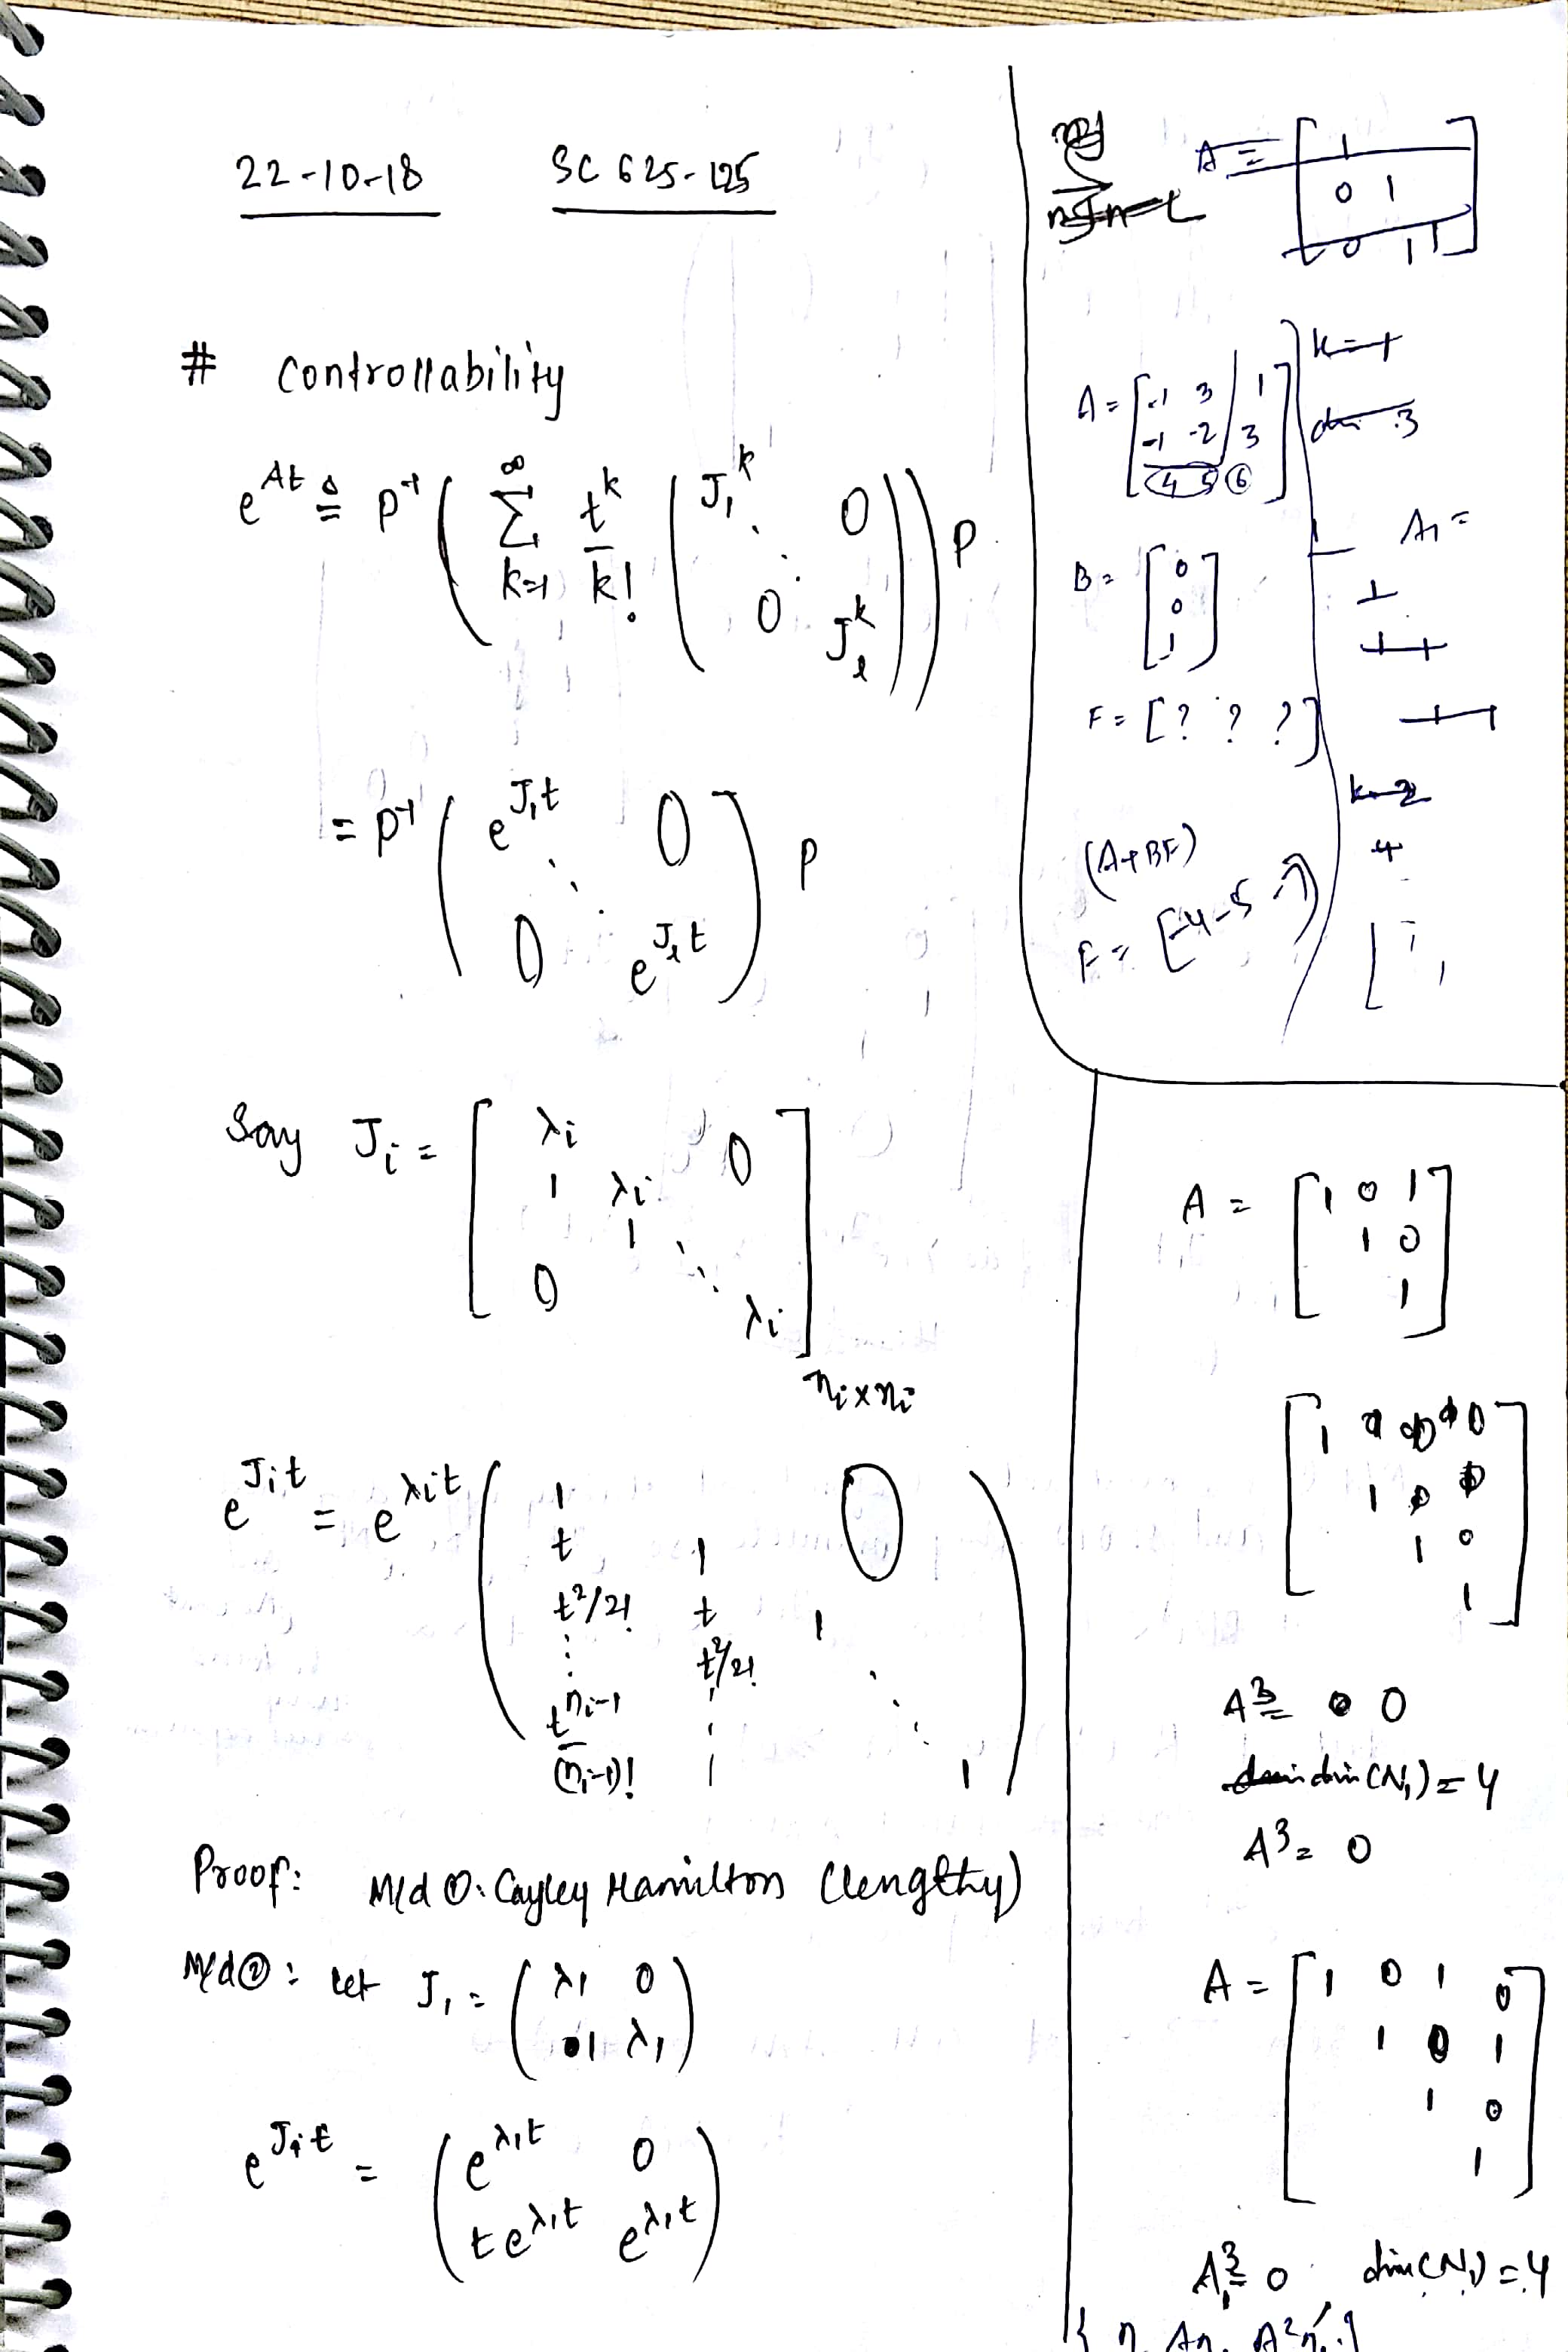 22-10-18 SC 625-125
# Controllability
e^{At} ≜ P^{-1} ( ∑_{k=1}^{∞} t^k/k! ( J_1^k ⋱ 0 0 J_l^k ) ) P
= P^{-1} ( e^{J_1 t} ⋱ 0 0 e^{J_l t} ) P
Say J_i = [ λi 0
1 λi
1 ⋱
0 λi ] n_i × n_i
e^{J_i t} = e^{λi t} ( 1 0
t 1
t²/2! t 1
⋮ t²/2! ⋱
t^{n_i-1}/(n_i-1)! ⋮ 1 )
Proof: M/d ①: Cayley Hamilton (lengthy)
M/d ②: Let J_1 = ( λ1 0
1 λ1 )
e^{J_1 t} = ( e^{λ1 t} 0
t e^{λ1 t} e^{λ1 t} )
A = [ 1
0 1
0 1 1 ]
A = [ -1 3 1
-1 -2 3
4 5 6 ]
k=1
3
B = [ 0
0
1 ]
A1 =
F = [ ? ? ? ]
k=2
4
(A+BF)
F = [-4 -5
A = [ 1 0 1
1 0
1 ]
[ 1 0 0
1 0 0
1 0
1 ]
A^3 = 0
dim(N1) = 4
A^3 = 0
A = [ 1 0 1 0
1 0 1
1 0
1 ]
= 0 dim(N1) = 4